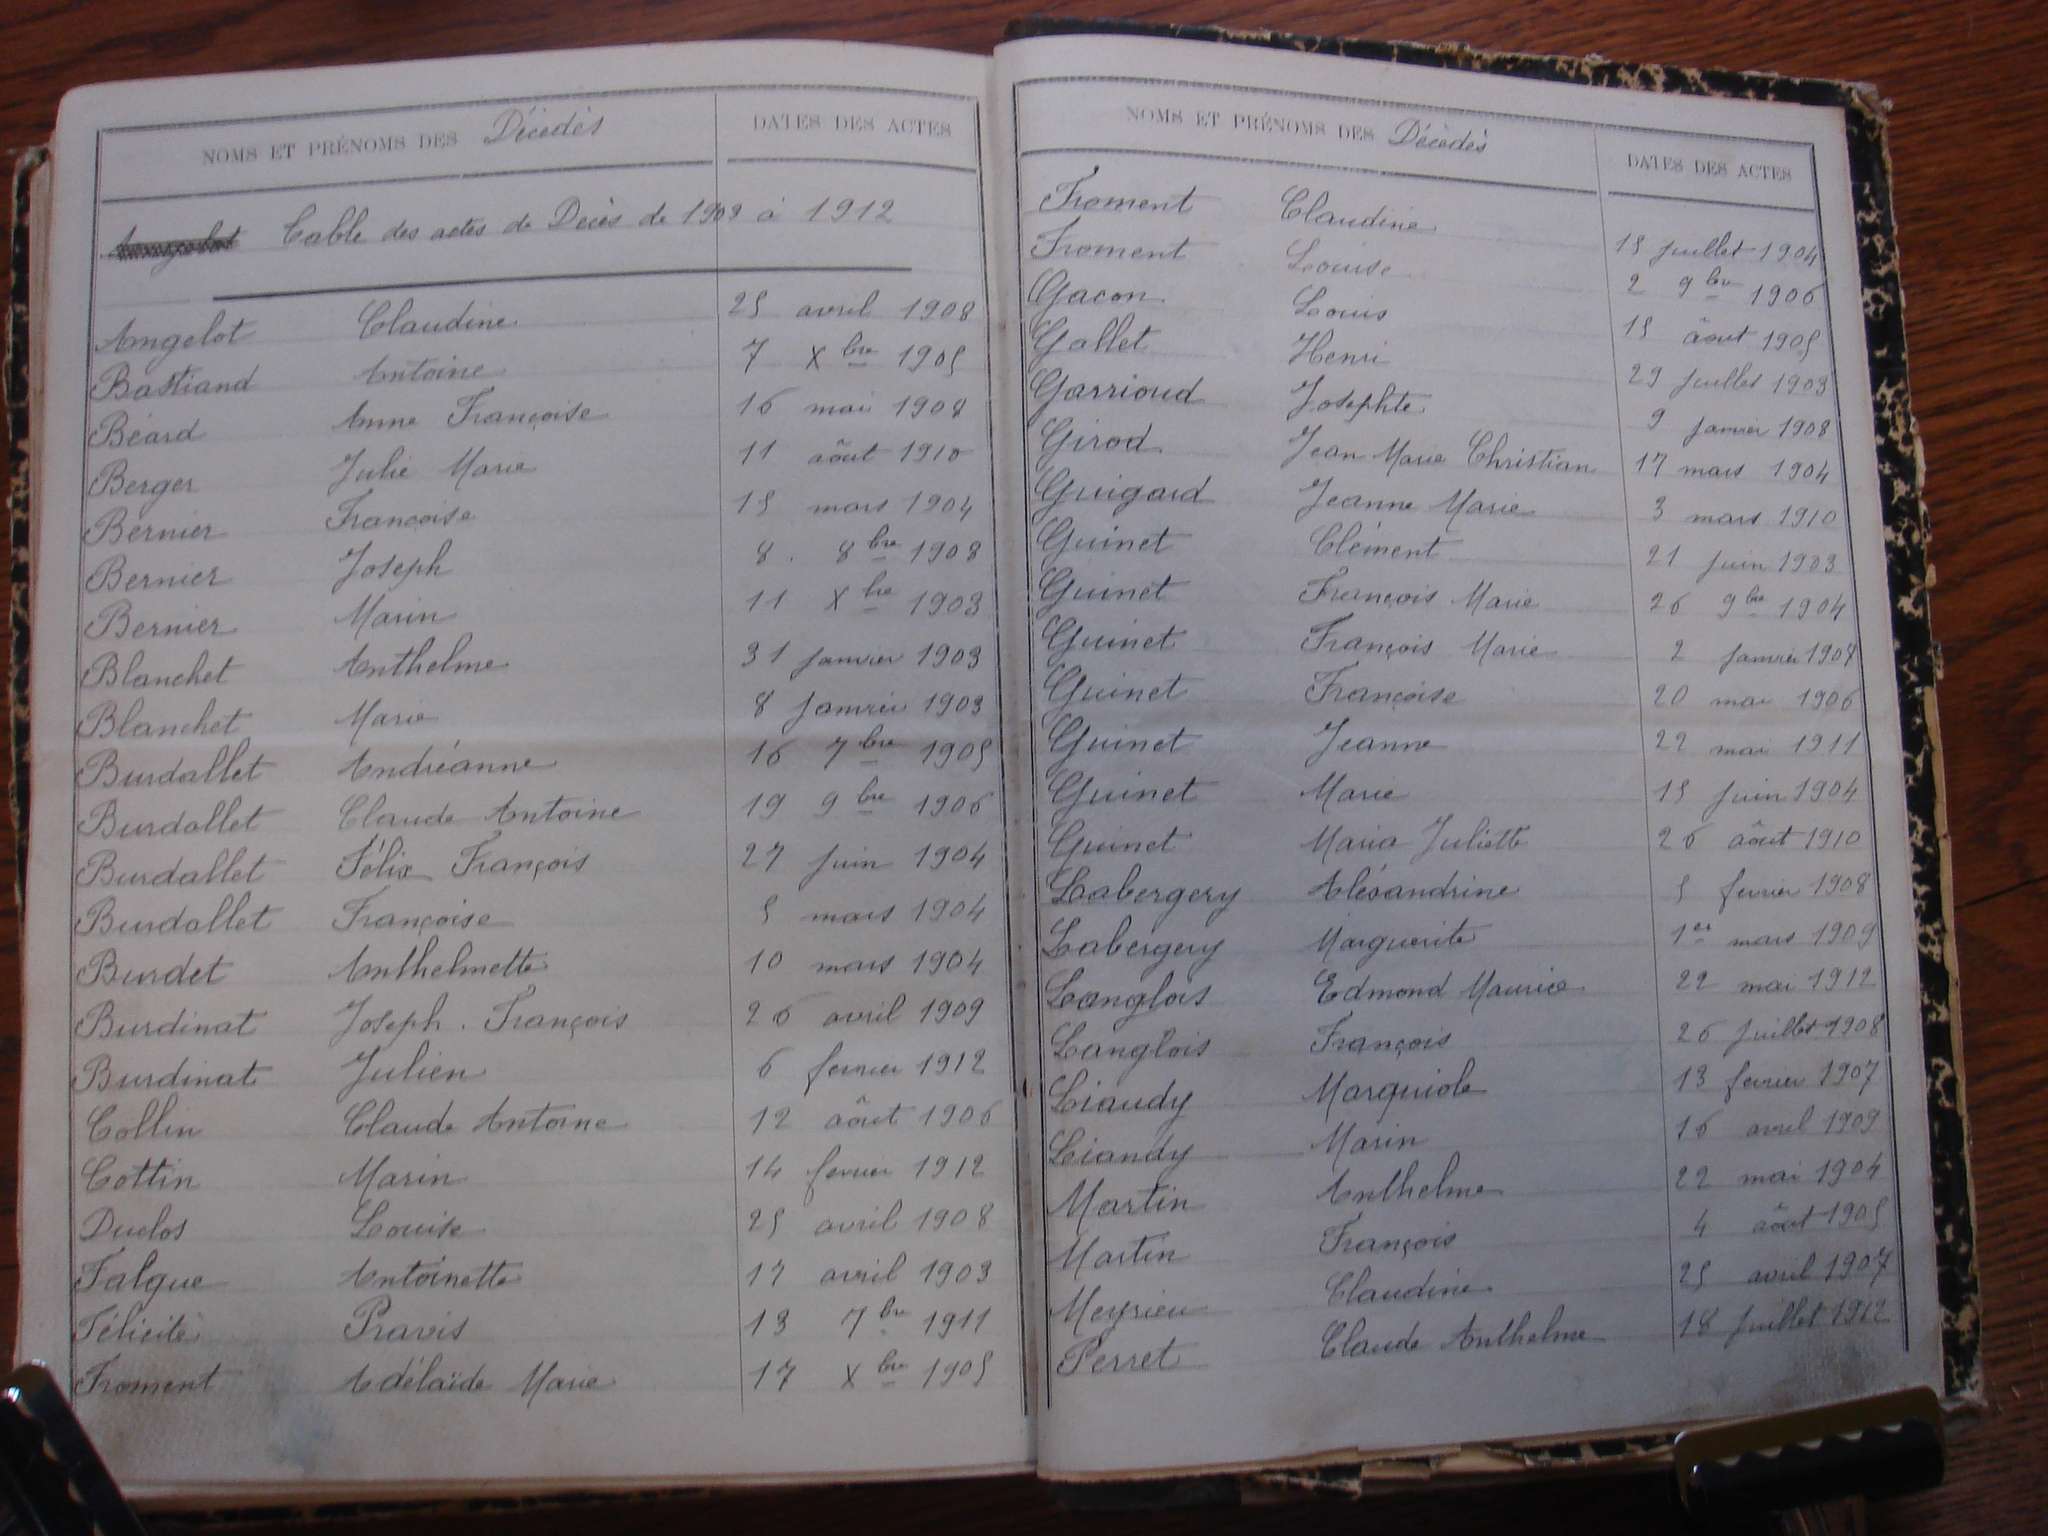 NOMS ET PRÉNOMS DES Décédés DATES DES ACTES
Table des actes de Décès de 1903 à 1912
Angelot Claudine 25 avril 1908
Bastiand Antoine 7 Xbre 1905
Béard Anne Françoise 16 mai 1908
Berger Julie Marie 11 âout 1910
Bernier Françoise 15 mars 1904
Bernier Joseph 8. 8bre 1908
Bernier Marin 11 Xbre 1903
Blanchet Anthelme 31 janvier 1903
Blanchet Marie 8 janvier 1903
Burdallet Andréanne 16 7bre 1905
Burdallet Claude Antoine 19 9bre 1906
Burdallet Félix François 27 juin 1904
Burdallet Françoise 5 mars 1904
Burdet Anthelmette 10 mars 1904
Burdinat Joseph. François 26 avril 1909
Burdinat Julien 6 fevrier 1912
Collin Claude Antoine 12 âout 1906
Cottin Marin 14 fevrier 1912
Duclos Louise 25 avril 1908
Falque Antoinette 17 avril 1903
Félicité Pravis 13 7bre 1911
Froment Adélaïde Marie 17 Xbre 1905
NOMS ET PRÉNOMS DES Décédés DATES DES ACTES
Froment Claudine 15 juillet 1904
Froment Louise 2 9bre 1906
Gacon Louis 15 âout 1905
Gallet Henri 29 juillet 1903
Garrioud Josephte 9 janvier 1908
Girod Jean Marie Christian 17 mars 1904
Guigard Jeanne Marie 3 mars 1910
Guinet Clément 21 juin 1903
Guinet François Marie 26 9bre 1904
Guinet François Marie 2 janvier
Guinet Françoise 20 mai 1906
Guinet Jeanne 22 mai 1911
Guinet Marie 15 juin 1904
Guinet Maria Juliette 26 âout 1910
Labergery Aléxandrine 5 fevrier 1908
Labergery Marguerite 1er mars 1909
Langlois Edmond Maurice 22 mai 1912
Langlois François 26 juillet 1908
Liaudy 13 fevrier 1907
Liaudy Marin 16 avril 1909
Martin Anthelme 22 mai 1904
Martin François 4 âout 1905
Meyrieu Claudine 25 avril 1907
Perret Claude Anthelme 18 juillet 1912